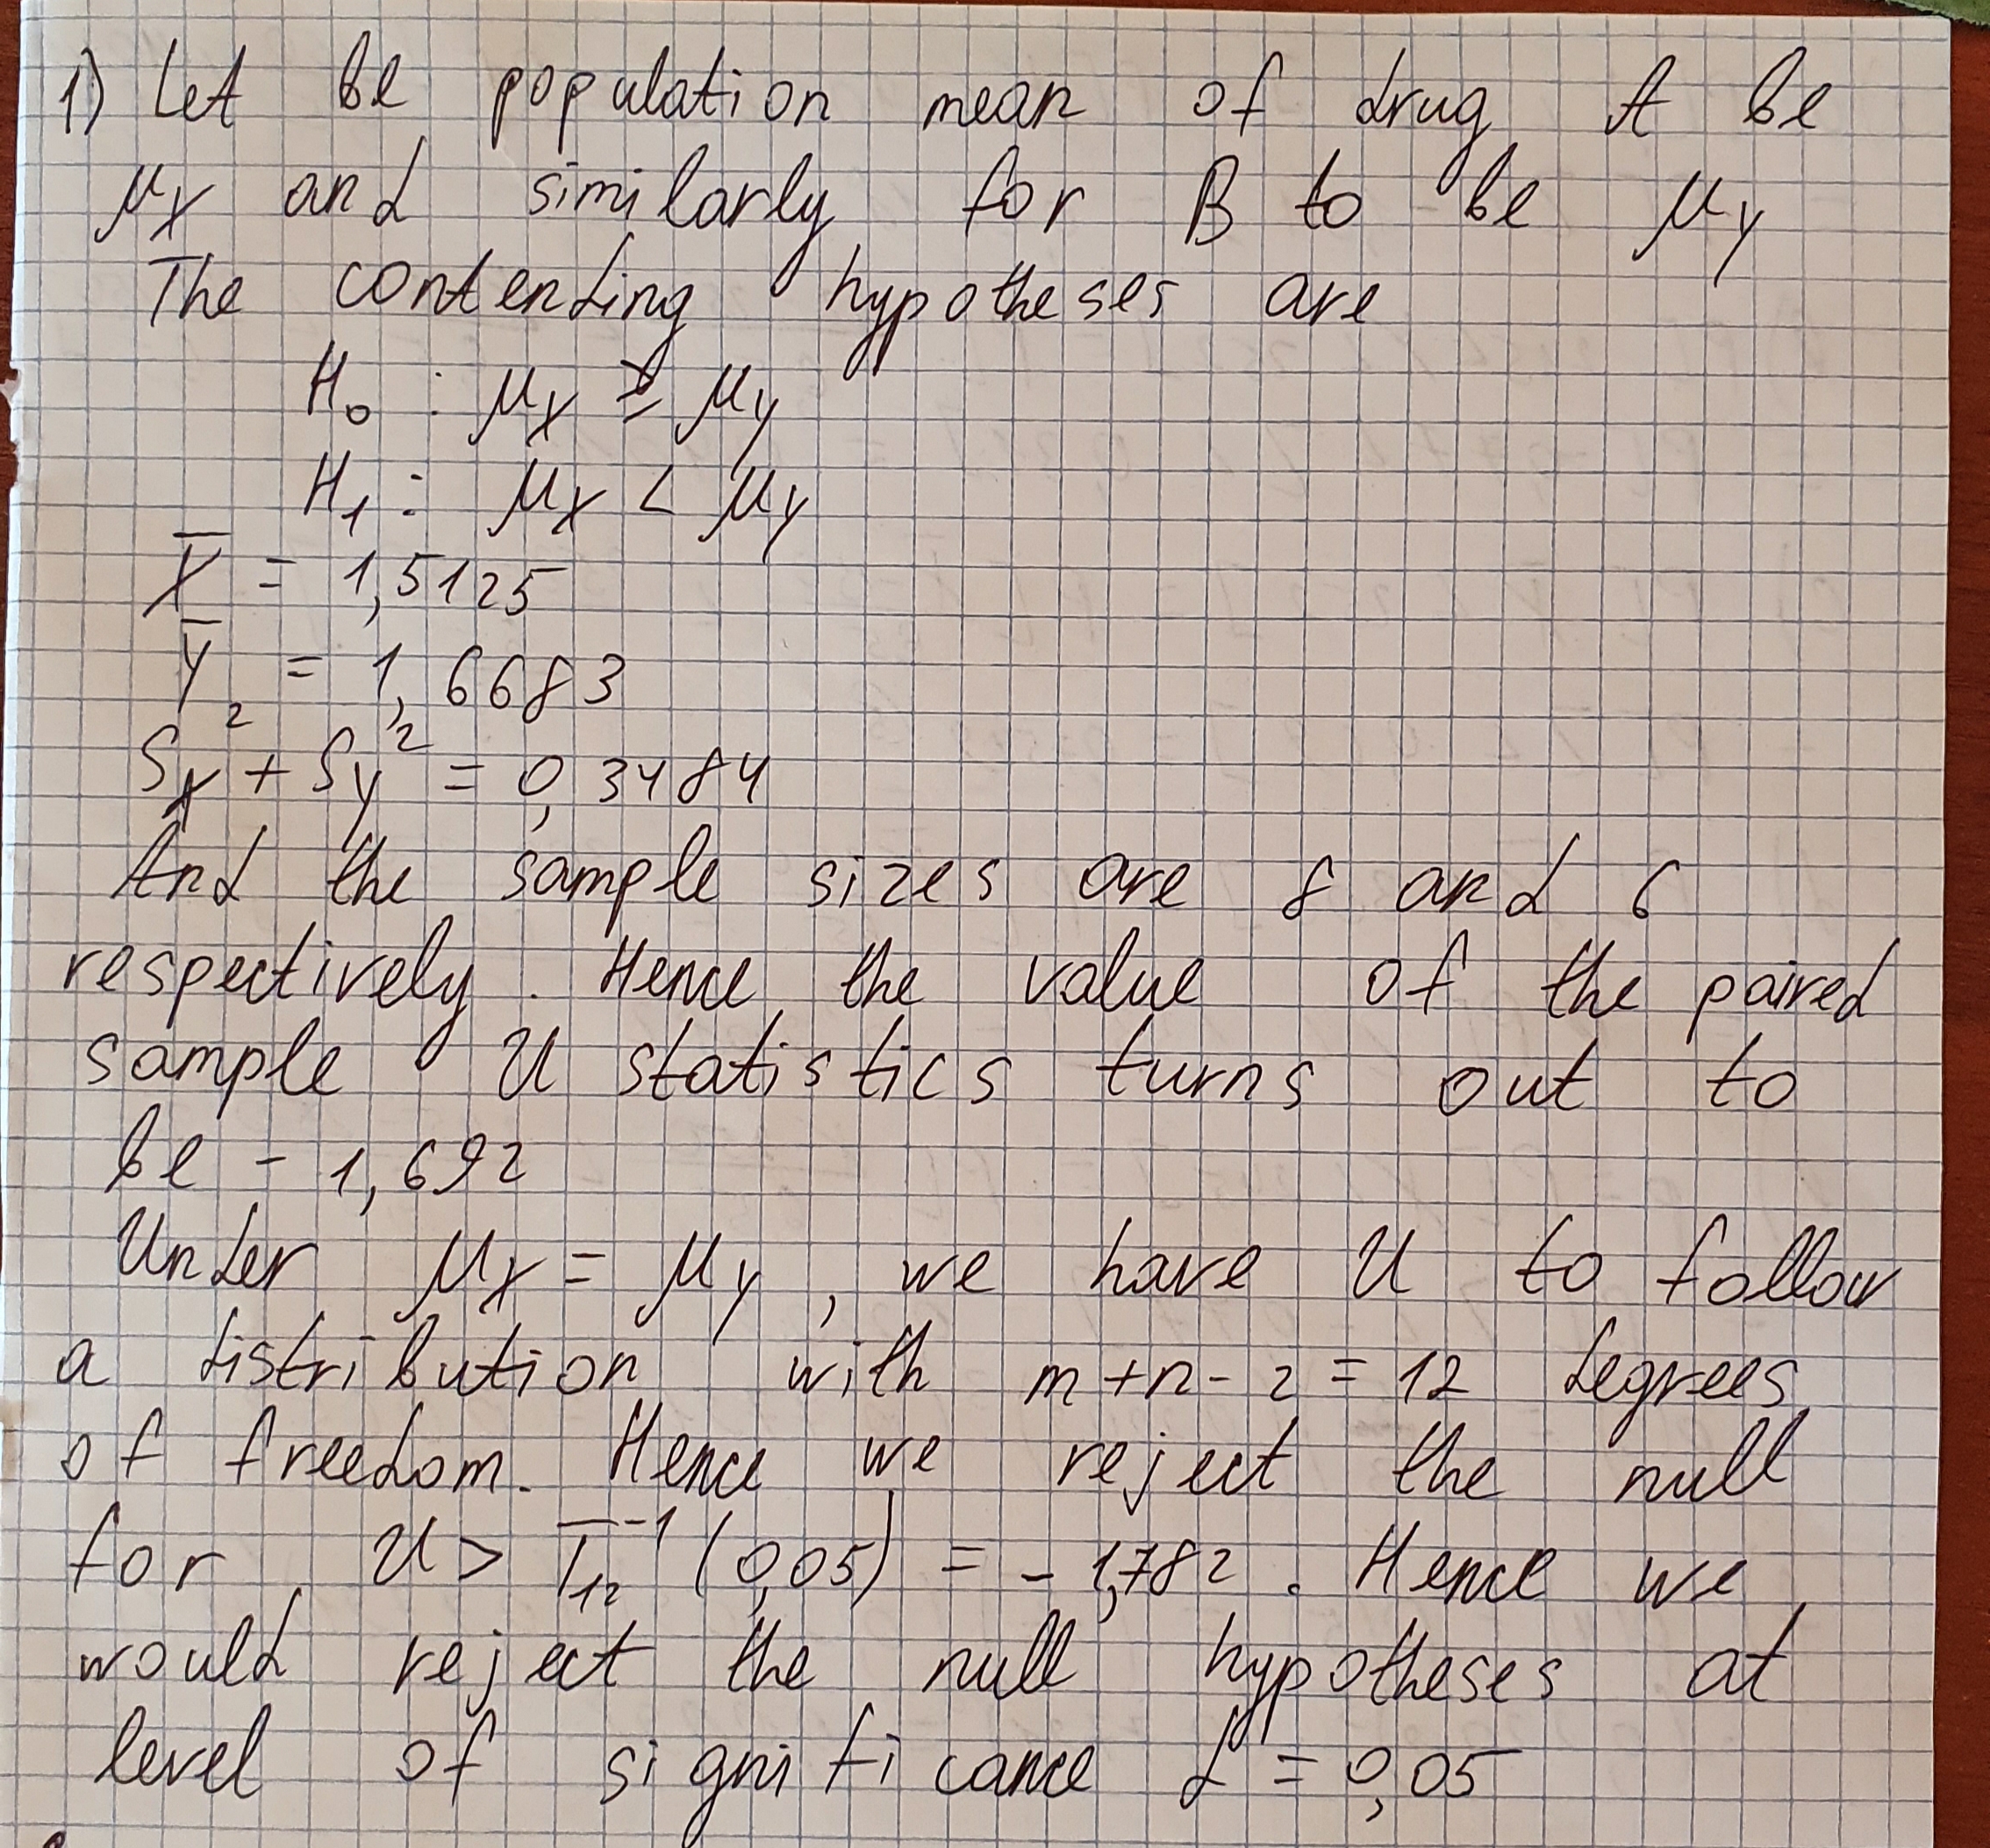 1) Let be population mean of drug A be
μx and similarly for B to be μy
The contending hypotheses are
H₀ : μx ≥ μy
H₁ : μx < μy
X̅ = 1,5125
Y̅ = 1,6683
Sx² + Sy² = 0,3484
And the sample sizes are 8 and 6
respectively. Hence the value of the paired
sample U statistics turns out to
be - 1,692
Under μx = μy, we have U to follow
a distribution with m+n-2 = 12 degrees
of freedom. Hence we reject the null
for U > T₁₂⁻¹ (0,05) = - 1,782. Hence we
would reject the null hypotheses at
level of significance α = 0,05